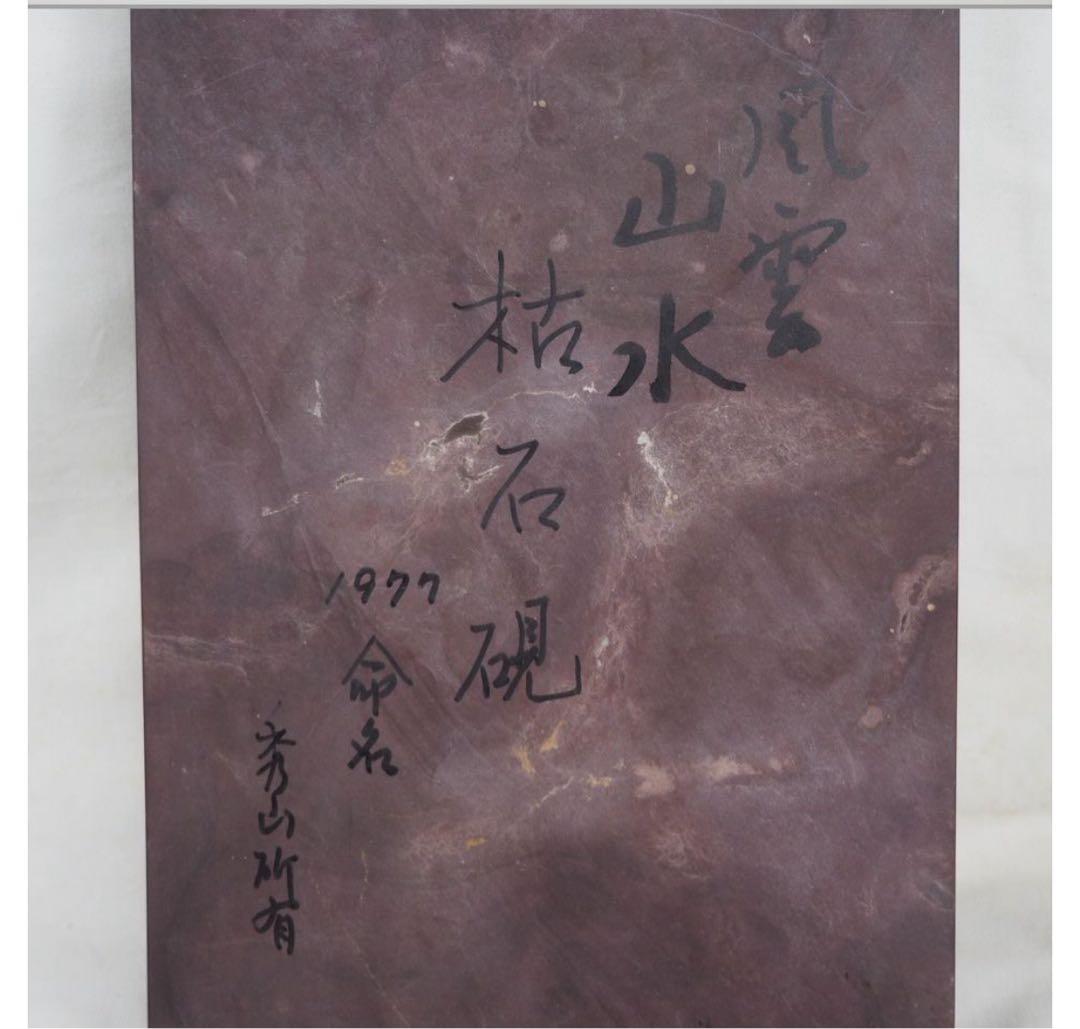 風雲
山水
枯石硯
1977
命名
秀山所有